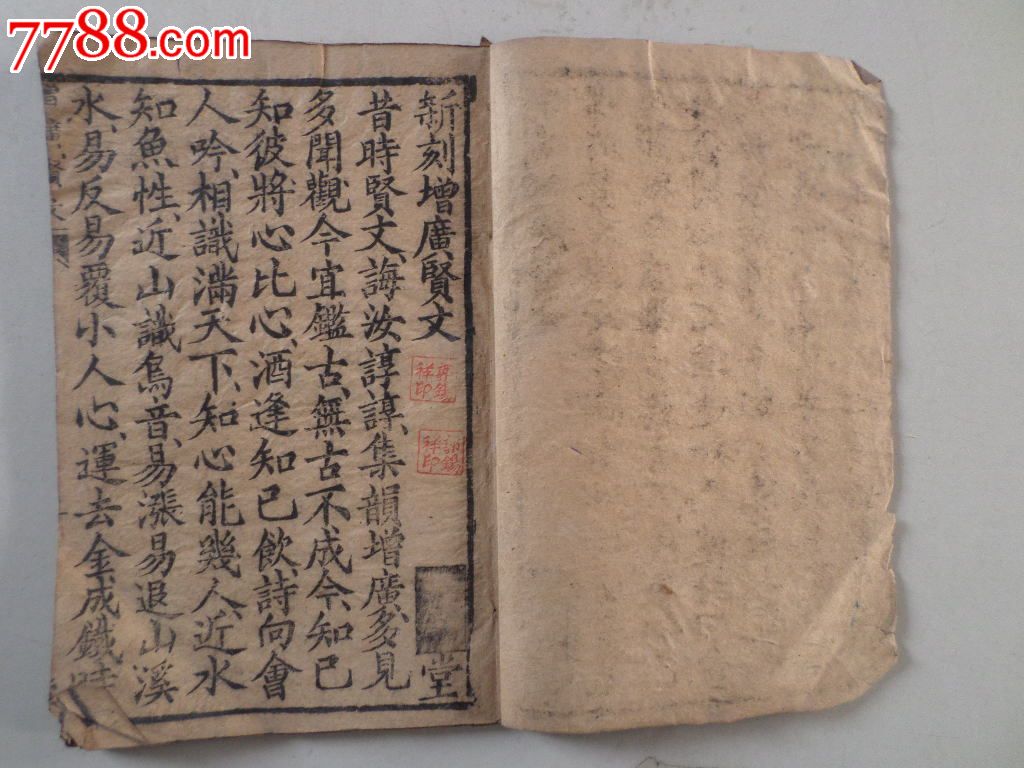 7788.com
新刻增廣賢文
堂
昔時賢文、誨汝諄諄、集韻增廣、多見
多聞、觀今宜鑑古、無古不成今、知己
知彼、將心比心、酒逢知己飲、詩向會
人吟、相識滿天下、知心能幾人、近水
知魚性、近山識鳥音、易漲易退山溪
水、易反易覆小人心、運去金成鐵